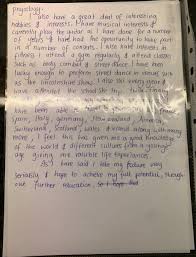 physiology.
I also have a great deal of interesting
hobbies & interests. I have musical interests &
currently play the guitar as I have done for a number
of years & have had the opportunity to take part
in a number of concerts. I also have interests in
fitness. I attend a gym regularly & attend classes
such as body combat & street dance. I have been
lucky enough to perform street dance in venues such
as the
have attended the school ski trip
have been able to
Spain, Italy, Germany, New england, America,
Switzerland, Scotland, Wales, & Ireland along with many
more, I feel this has given me a good knowledge
of the world & different cultures from a young
age giving me valuble life experiences.
As I have said I take my future very
seriously & hope to achieve my full potential, through
out further education.